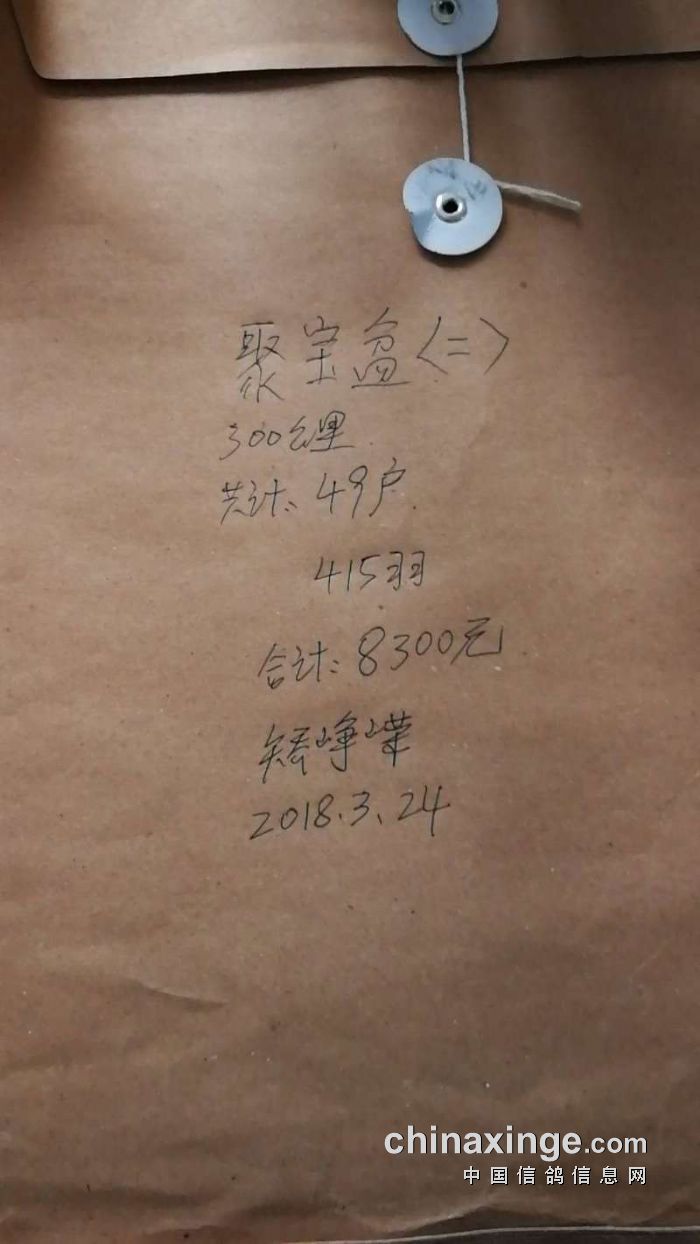 聚宝盆〈二〉
300公里.
共计: 49户.
415羽
合计: 8300元.
矫峥嵘
2018.3.24
chinaxinge.com
中国信鸽信息网